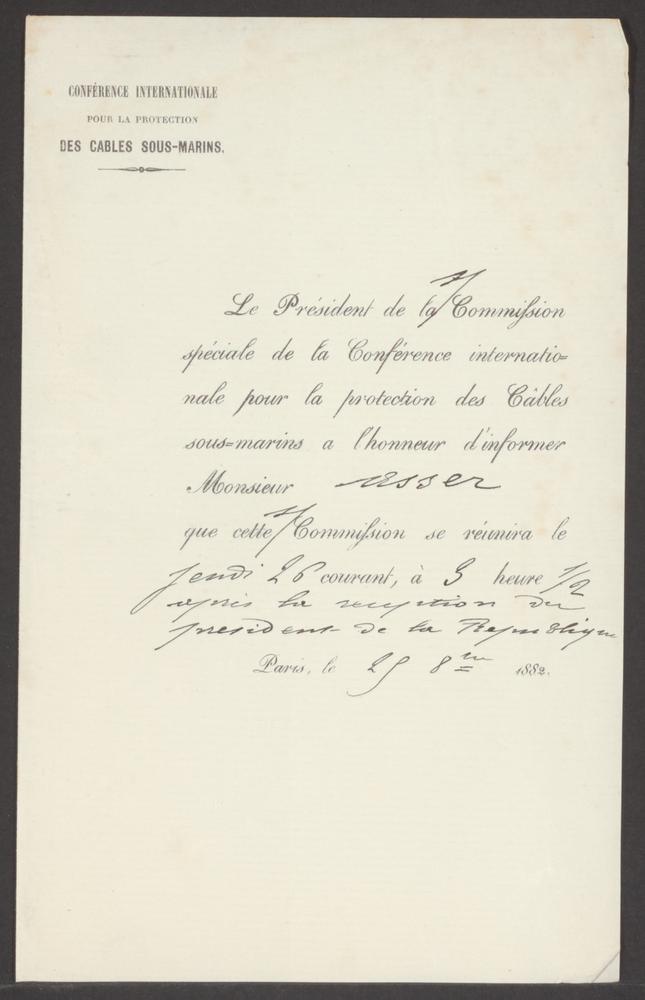 CONFÉRENCE INTERNATIONALE
POUR LA PROTECTION
DES CABLES SOUS-MARINS.
Le Président de la Commission
spéciale de la Conférence internatio=
nale pour la protection des Câbles
sous=marins a l'honneur d'informer
Monsieur Asser
que cette Commission se réunira le
jeudi 26 courant, à 3 heure 1/2
après la reception du
president de la Republique
Paris, le 25 8bre 1882.